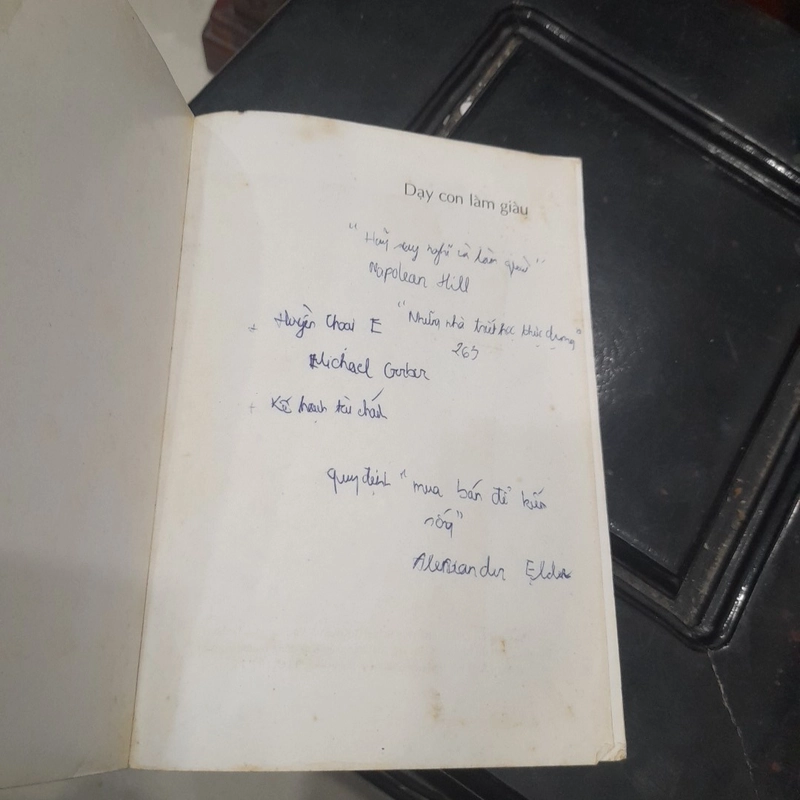 Dạy con làm giàu
"Hãy suy nghĩ và làm giàu"
Napolean Hill
+ Huyền thoại E "Những nhà triết học khắc dụng"
265
Michael Gerber
+ Kế hoạch tài chính
quy định "mua bán để kiếm
sống"
Alexander Elder